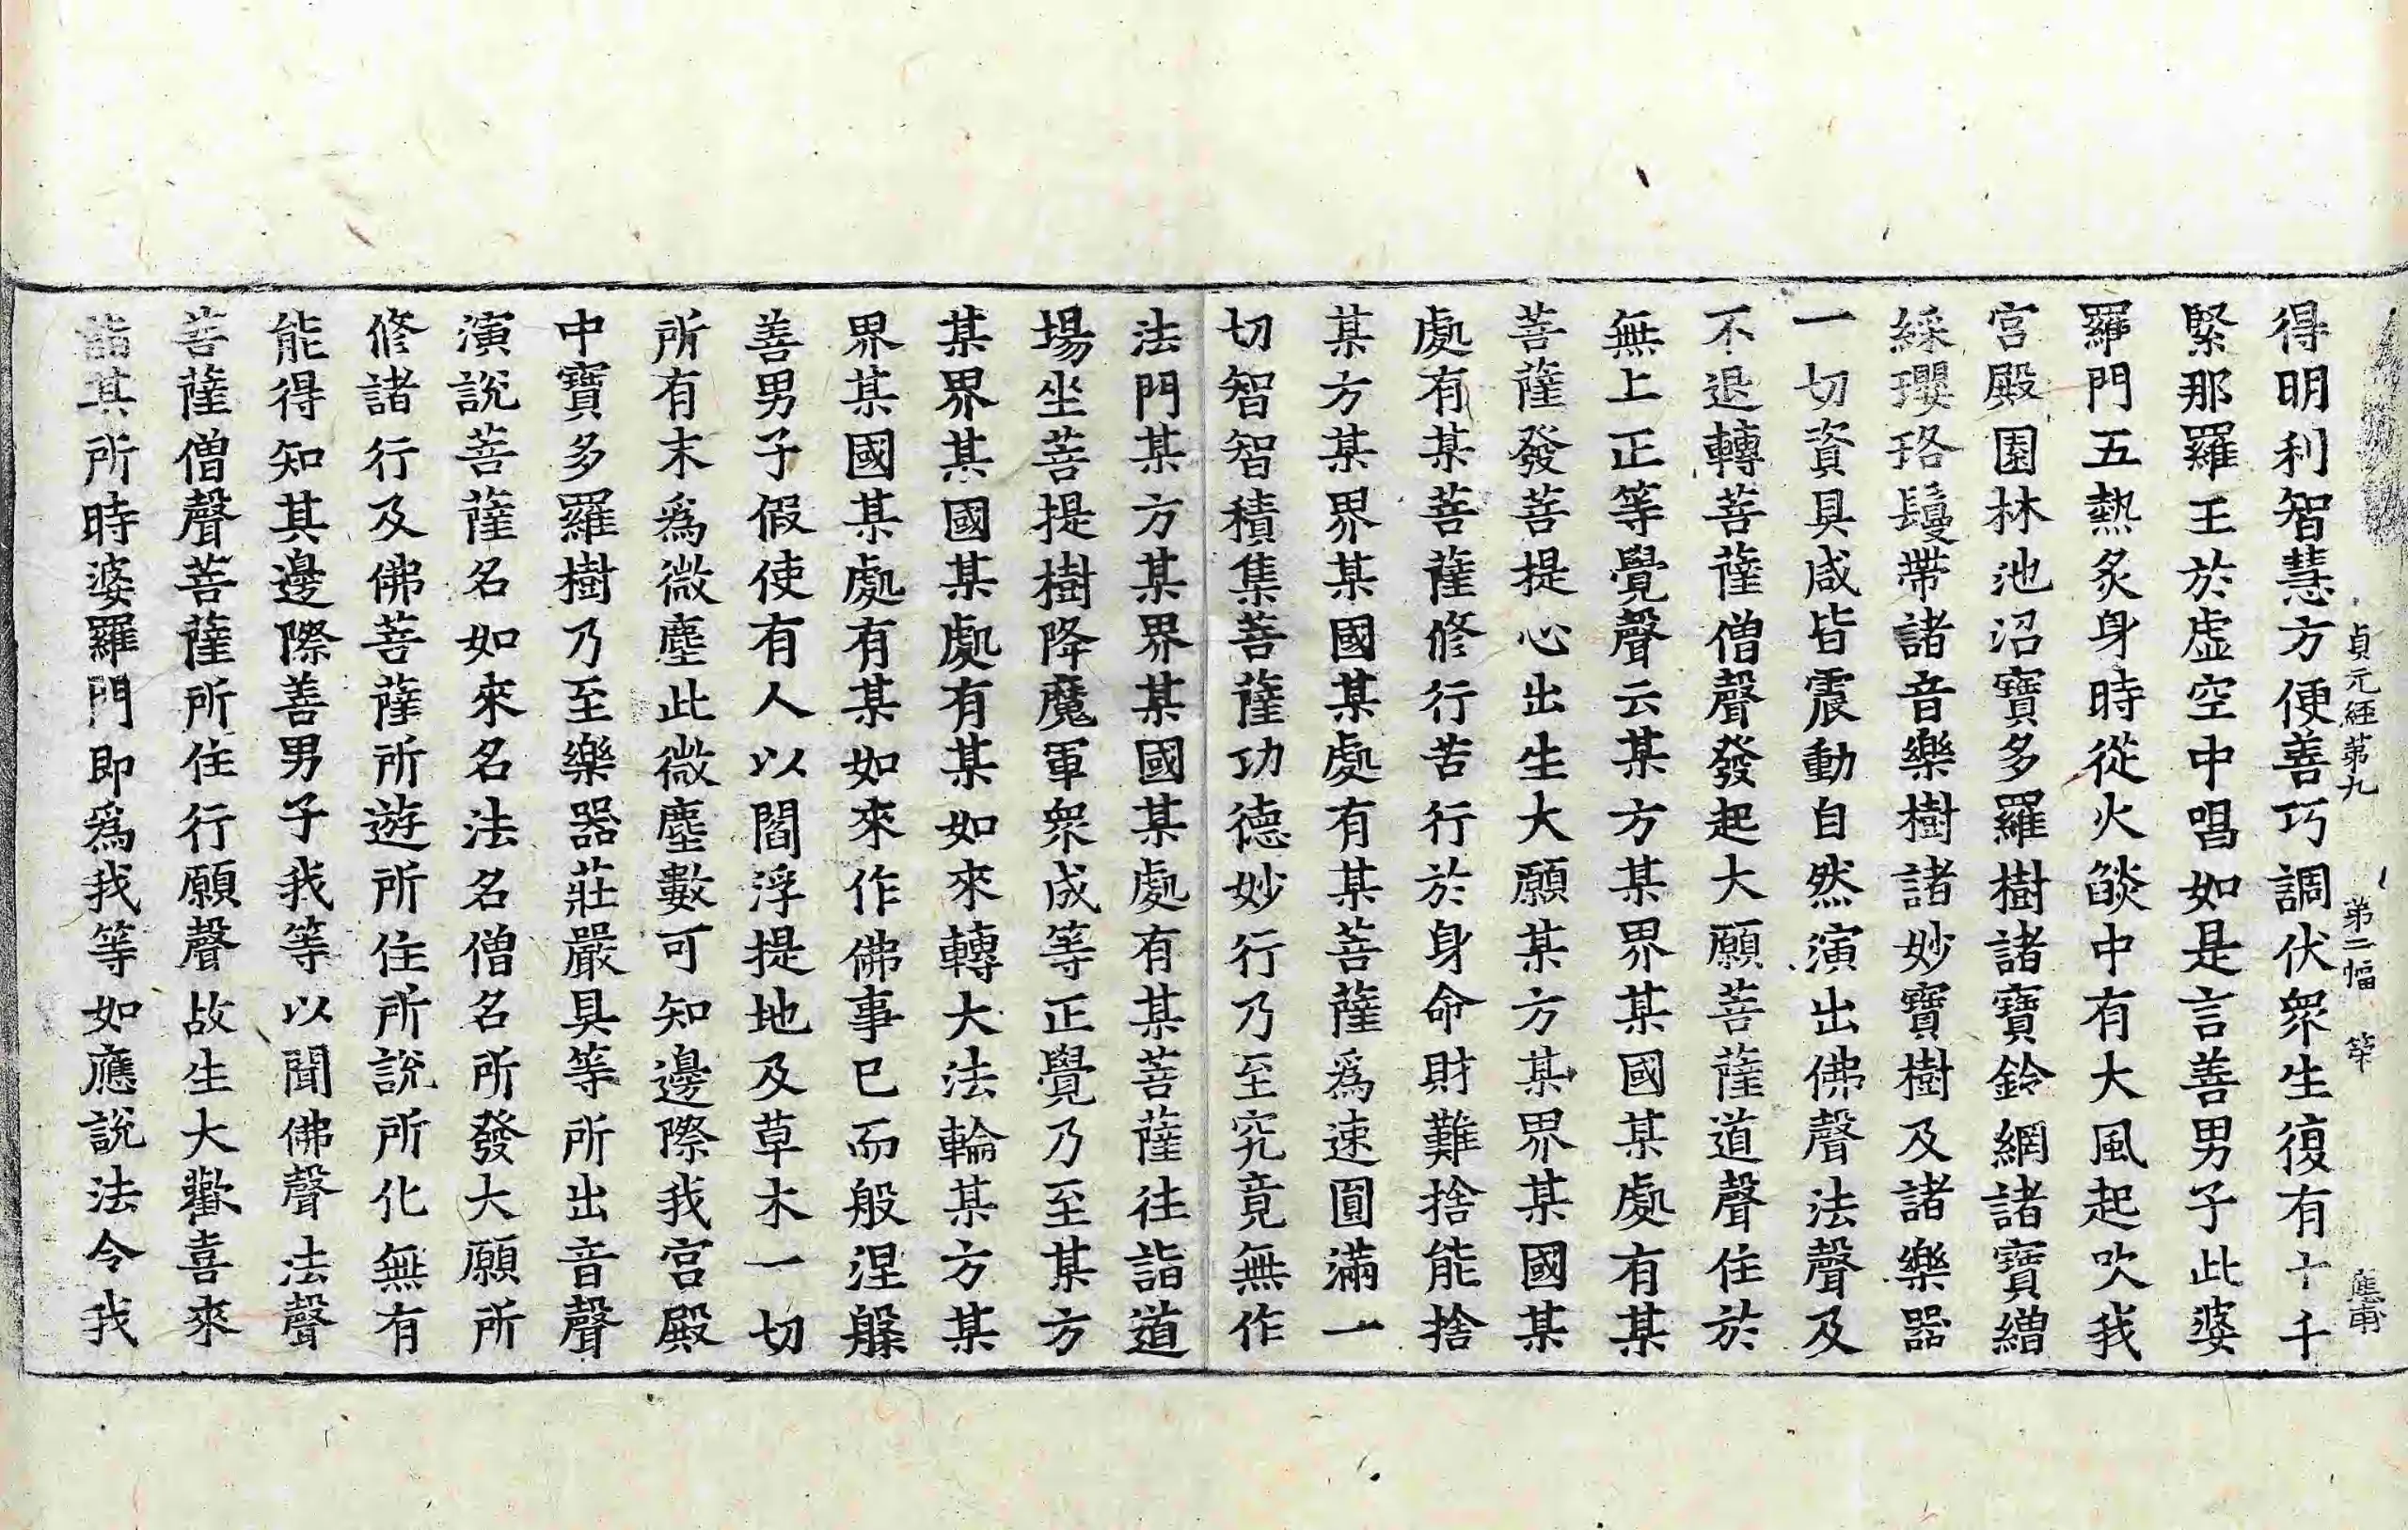 貞元經第九 第二幅 筞 熊甫
得明利智慧方便善巧調伏衆生復有十千
緊那羅王於虛空中唱如是言善男子此婆
羅門五熱炙身時從火燄中有大風起吹我
宮殿園林池沼寶多羅樹諸寶鈴網諸寶繒
綵瓔珞鬘帶諸音樂樹諸妙寶樹及諸樂器
一切資具咸皆震動自然演出佛聲法聲及
不退轉菩薩僧聲發起大願菩薩道聲住於
無上正等覺聲云某方某界某國某處有某
菩薩發菩提心出生大願某方某界某國某
處有某菩薩修行苦行於身命財難捨能捨
某方某界某國某處有某菩薩爲速圓滿一
切智智積集菩薩功德妙行乃至究竟無作
法門某方某界某國某處有某菩薩往詣道
場坐菩提樹降魔軍衆成等正覺乃至某方
某界某國某處有某如來轉大法輪某方某
界某國某處有某如來作佛事已而般涅槃
善男子假使有人以閻浮提地及草木一切
所有末爲微塵此微塵數可知邊際我宮殿
中寶多羅樹乃至樂器莊嚴具等所出音聲
演說菩薩名如來名法名僧名所發大願所
修諸行及佛菩薩所遊所住所說所化無有
能得知其邊際善男子我等以聞佛聲法聲
菩薩僧聲菩薩所住行願聲故生大歡喜來
詣其所時婆羅門即爲我等如應說法令我